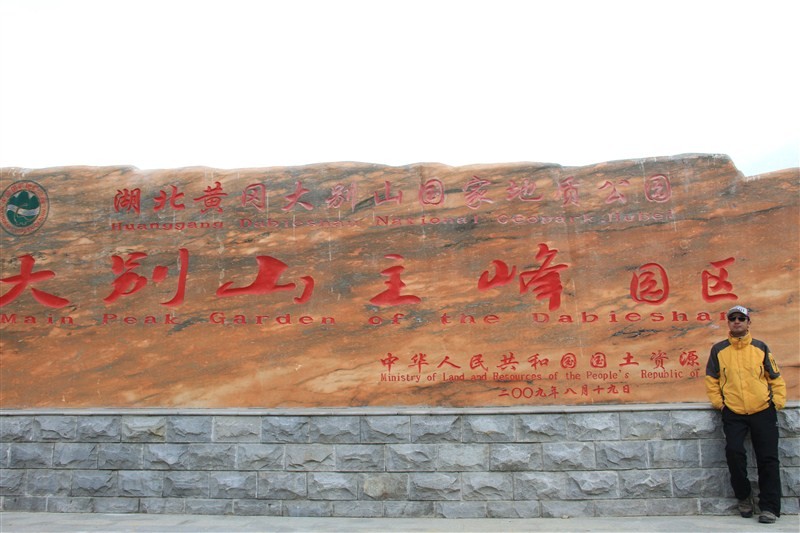 湖北黄冈大别山国家地质公园
Huanggang Dabieshan National Geopark Hubei
大别山主峰园区
Main Peak Garden of the Dabieshan
中华人民共和国国土資源
Ministry of Land and Resources of the People's Republic of
二〇〇九年八月十九日